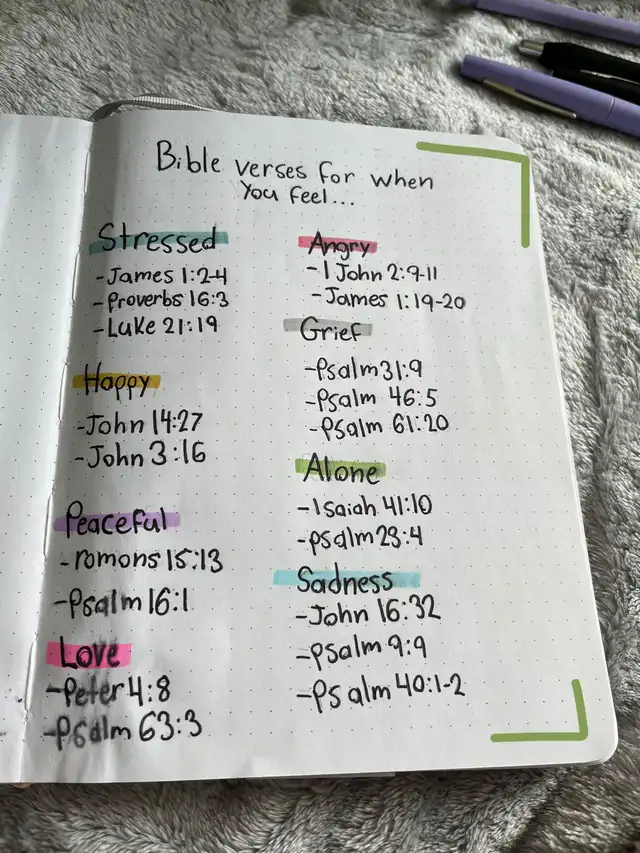 Bible verses for when
You feel...
Stressed
-James 1:2-4
-Proverbs 16:3
-Luke 21:19
Happy
-John 14:27
-John 3:16
Peaceful
-romons 15:13
-Psalm 16:1
Love
-Peter 4:8
-Psalm 63:3
Angry
-1 John 2:9-11
-James 1:19-20
Grief
-Psalm 31:9
-Psalm 46:5
-Psalm 61:20
Alone
-Isaiah 41:10
-psalm 23:4
Sadness
-John 16:32
-Psalm 9:9
-Psalm 40:1-2